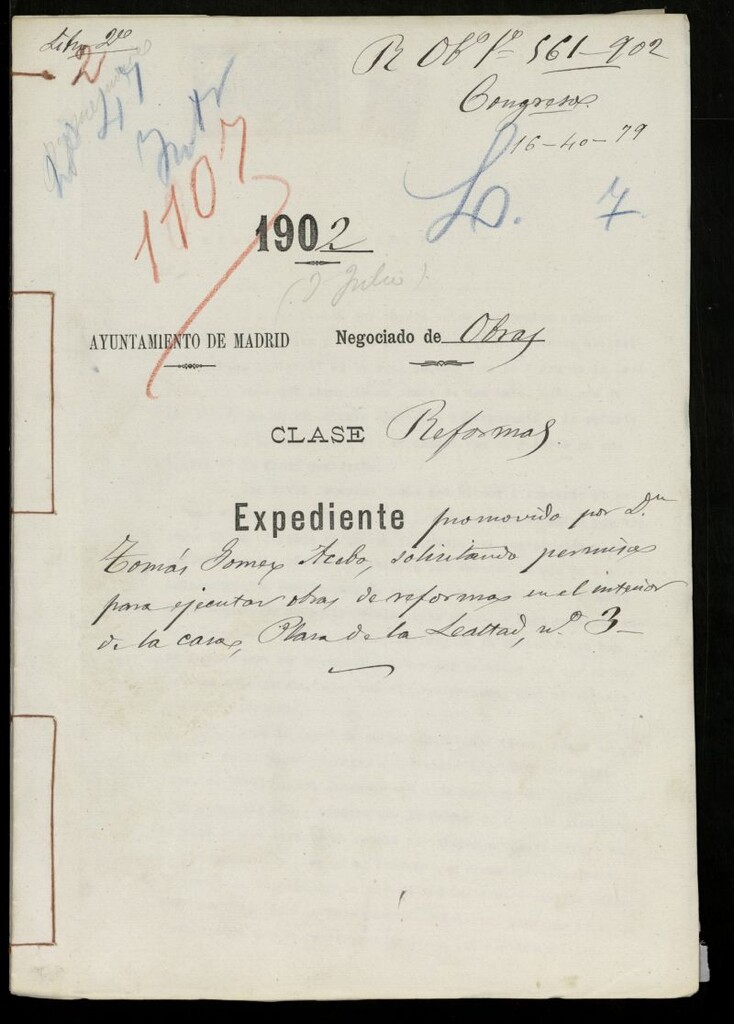 R Obs 561-902
Congreso
16-40-79
2
41
1107
L. 7
1902
AYUNTAMIENTO DE MADRID Negociado de Obras
CLASE Reformas
Expediente promovido por Dn
Tomás Gomez Acebo, solicitando permiso
para ejecutar obras de reformas en el interior
de la casa, Plaza de la Lealtad, nº 3-